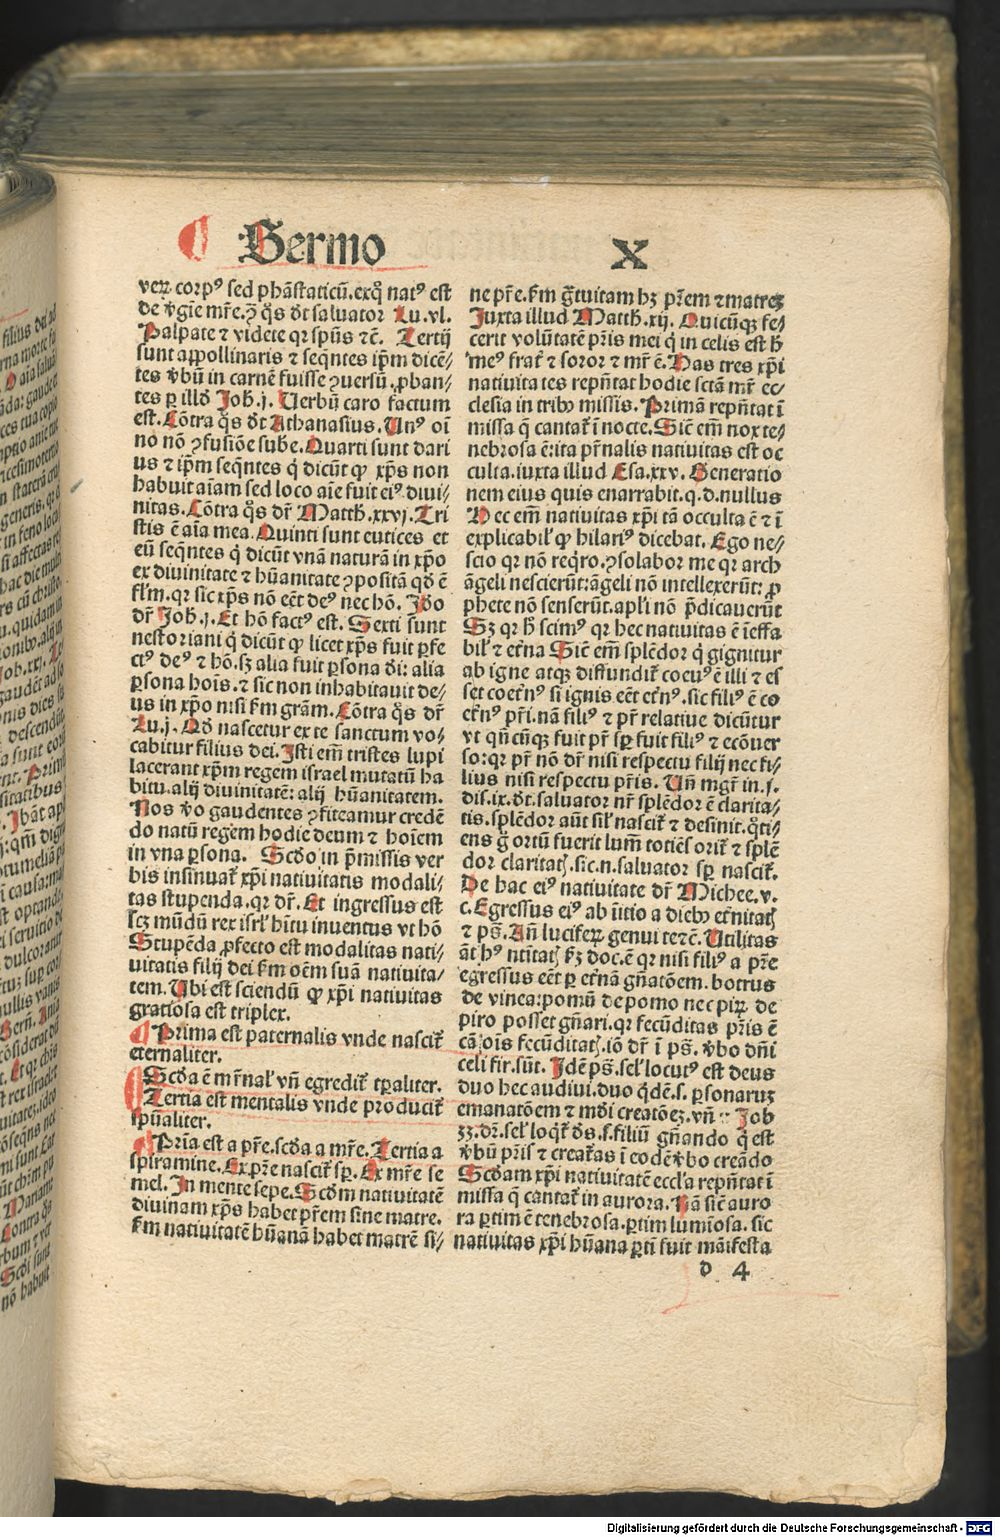 Sermo X
verꝝ corpꝰ sed phãstaticũ.exq̃ natꝰ est
de v̾gĩe mr̃e.ꝯ q̃s dt̃ saluator Lu.vl.
Palpate ⁊ videte qr spũs ⁊c̃. Tertij
sunt appollinaris ⁊ seq̃ntes ip̃m dicẽ⸗
tes v̾bũ in carnẽ fuisse ꝯuersũ ꝓban⸗
tes ꝑ illd̃ Joh̃.j. Uerbũ caro factum
est. Cõtra q̃s dt̃ Athanasius. Unꝰ oĩ
no nõ ꝯfusiõe sub̃e. Quarti sunt dari
us ⁊ ip̃m seq̃ntes q̃ dicũt ꝙ xp̃s non
habuit aĩam sed loco aĩe fuit eiꝰ diui⸗
nitas. Cõtra q̃s dr̃ Matth̃.xxvj. Tri
stis ẽ aĩa mea. Quinti sunt eutices et
eũ seq̃ntes q̃ dicũt vnã naturã in xp̃o
ex diuinitate ⁊ hũanitate ꝯpositã qd̃ ẽ
fl̃m. qr sic xp̃s nõ eẽt deꝰ nec hõ. Jdo
dr̃ Joh̃.j. Et hõ factꝰ est. Sexti sunt
nestoriani q̃ dicũt ꝙ licet xp̃s fuit ꝑfe
ctꝰ deꝰ ⁊ hõ. sꝫ alia fuit ꝑsona dĩ: alia
ꝑsona hoĩs. ⁊ sic non inhabitauit de⸗
us in xp̃o nisi fm̃ grãm. Cõtra q̃s dr̃
Lu.j. Qd̃ nascetur ex te sanctum vo⸗
cabitur filius dei. Jsti em̃ tristes lupi
lacerant xp̃m regem israel mutatũ ha
bitu. alij diuinitatẽ: alij hũanitatem.
Nos v̾o gaudentes ꝯfiteamur credẽ
do natũ regem hodie deum ⁊ hoĩem
in vna ꝑsona. Scd̃o in p̃missis ver
bis insinuat̃ xp̃i natiuitatis modali⸗
tas stupenda. qr dr̃. Et ingressus est
scꝫ mũdũ rex isrl̃ hĩtu inuentus vt hõ
Stupẽda ꝓfecto est modalitas nati⸗
uitatis filij dei fm̃ oẽm suã natiuita⸗
tem. Ubi est sciendũ ꝙ xp̃i natiuitas
gratiosa est triplex.
Prima est paternalis vnde nascit̃
eternaliter.
Scd̃a ẽ mr̃nal̃ vñ egredit̃ tꝑaliter.
Tertia est mentalis vnde producit̃
spũaliter.
Prĩa est a pr̃e. scd̃a a mr̃e. Tertia a
spiramine. Ex pr̃e nascit̃ sꝑ. Ex mr̃e se
mel. Jn mente sepe. Scd̃m natiuitatẽ
diuinam xp̃s habet pr̃em sine matre.
fm̃ natiuitatẽ hũanã habet matrẽ si⸗
ne pr̃e. fm̃ gr̃tuitam hꝫ pr̃em ⁊ matreꝫ
Juxta illud Matth̃.xij. Quicũqꝫ fe⸗
cerit volũtatẽ pr̃is mei q̃ in celis est h̃
meꝰ frat̃ ⁊ soror ⁊ mr̃ ẽ. Has tres xp̃i
natiuitates repñtat hodie sctã mr̃ ec⸗
clesia in tribꝰ missis. Primã repñtat ĩ
missa q̃ cantat̃ ĩ nocte. Sic̃ em̃ nox te⸗
nebrosa ẽ: ita pr̃nalis natiuitas est oc
culta. iuxta illud Esa.xxv. Generatio
nem eius quis enarrabit. q.d. nullus
Hec em̃ natiuitas xp̃i tã occulta ẽ ⁊ ĩ
explicabil̃ ꝙ hilariꝰ dicebat. Ego ne⸗
scio qr nõ req̃ro. ꝯsolabor me qr arch
ãgeli nescierũt: ãgeli nõ intellexerũt: ꝓ
phete nõ senserũt. apl̃i nõ p̃dicauerũt
Sꝫ qr h̃ scimꝰ qr hec natiuitas ẽ ĩeffa
bil̃ ⁊ et̃na Sic̃ em̃ splẽdor q̃ gignitur
ab igne atqꝫ diffundit̃ coeuꝰ ẽ illi ⁊ es
set coet̃nꝰ si ignis eẽt et̃nꝰ. sic filiꝰ ẽ co
et̃nꝰ pr̃i. nã filiꝰ ⁊ pr̃ relatiue dicũtur
vt qñcũqꝫ fuit pr̃ sꝑ fuit filiꝰ ⁊ ecõuer
so: qr pr̃ nõ dr̃ nisi respectu filij nec fi⸗
lius nisi respectu pr̃is. Uñ mgr̃ in.j.
dis.ix. dt̃. saluator nr̃ splẽdor ẽ clarita⸗
tis. splẽdor aũt sil̃ nascit̃ ⁊ desinit. q̃ti⸗
ens g̃ ortũ fuerit lum̃ totiẽs orit̃ ⁊ splẽ
dor claritatꝭ. sic.n. saluator sꝑ nascit̃.
De hac eiꝰ natiuitate dr̃ Michee.v.
c. Egressus eiꝰ ab ĩitio a diebꝰ et̃nitatꝭ
⁊ ps̃. Añ luciferꝝ genui te ⁊c̃. Utilitas
ãt hꝰ ntĩtatꝭ fꝫ doc. ẽ qr nisi filiꝰ a pr̃e
egressus eẽt ꝑ et̃nã gñatõem. botrus
de vinea: pomũ de pomo nec pirꝝ de
piro posset gñari. qr fecũditas pr̃is ẽ
cã oĩs fecũditatꝭ. iõ dr̃ ĩ ps̃. v̾bo dñi
celi fir. sũt. Jdẽ ps̃. sel̃ locutꝰ est deus
duo hec audiui. duo q̃dẽ.s. ꝑsonaruꝫ
emanatõem ⁊ mũdi creatõeꝫ. vñ Job
33. dr̃. sel̃ loq̃t̃ ds̃.s. filiũ gñando q̃ est
v̾bũ pr̃is ⁊ creat̃as ĩ eodẽ v̾bo creãdo
Scd̃am xp̃i natiuitatẽ eccl̃a repñtat ĩ
missa q̃ cantat̃ in aurora. Nã sic̃ auro
ra ꝑtim ẽ tenebrosa. ꝑtim lumĩosa. sic
natiuitas xp̃i hũana ꝑti fuit mãifesta
d 4
Digitalisierung gefördert durch die Deutsche Forschungsgemeinschaft - DFG